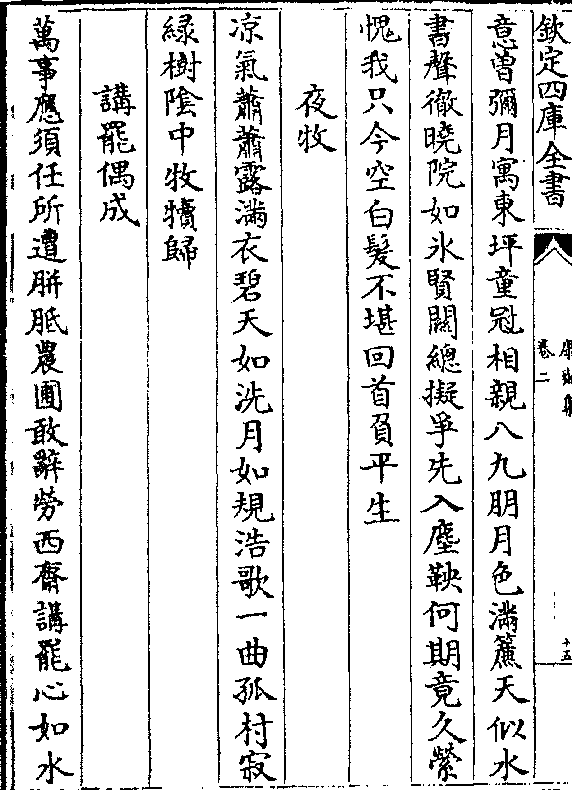 欽定四庫全書
康齋集
卷二
十五
意曽彌月寓東坪童冠相親八九朋月色滿簾天似水
書聲徹曉院如氷賢關總擬爭先入塵鞅何期竟久縈
愧我只今空白髮不堪回首負平生
夜牧
凉氣蕭蕭露滿衣碧天如洗月如規浩歌一曲孤村寂
緑樹陰中牧犢歸
講罷偶成
萬事應須任所遭胼胝農圃敢辭勞西齋講罷心如水